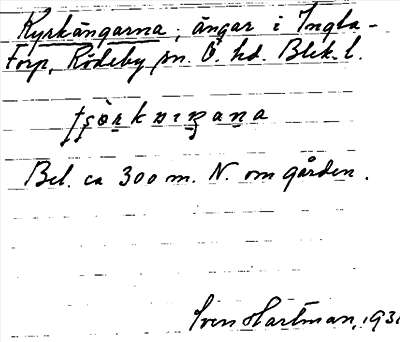 Kyrkängarna, ängar i Ingla-
torp, Rödeby sn. Ö. hd. Blek. l.
Bel. ca 300 m. N. om gården.
Sven Hartman, 1931